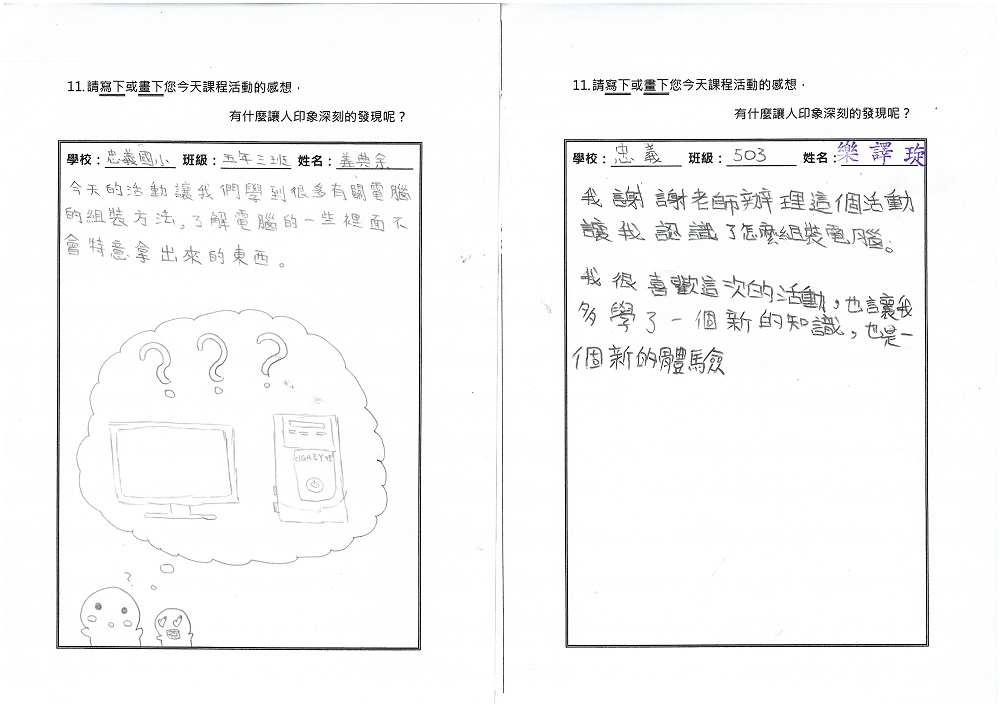 11.請寫下或畫下您今天課程活動的感想，
有什麼讓人印象深刻的發現呢？
學校：忠義國小 班級：五年三班 姓名：
今天的活動讓我們學到很多有關電腦
的組裝方法,了解電腦的一些裡面不
會特意拿出來的東西。
? ? ?
GIGABYTE
?
11.請寫下或畫下您今天課程活動的感想，
有什麼讓人印象深刻的發現呢？
學校：忠義 班級：503 姓名：樂譯璇
我謝謝老師辦理這個活動
讓我認識了怎麼組裝電腦。
我很喜歡這次的活動，也讓我
多學了一個新的知識，也是一
個新的體驗